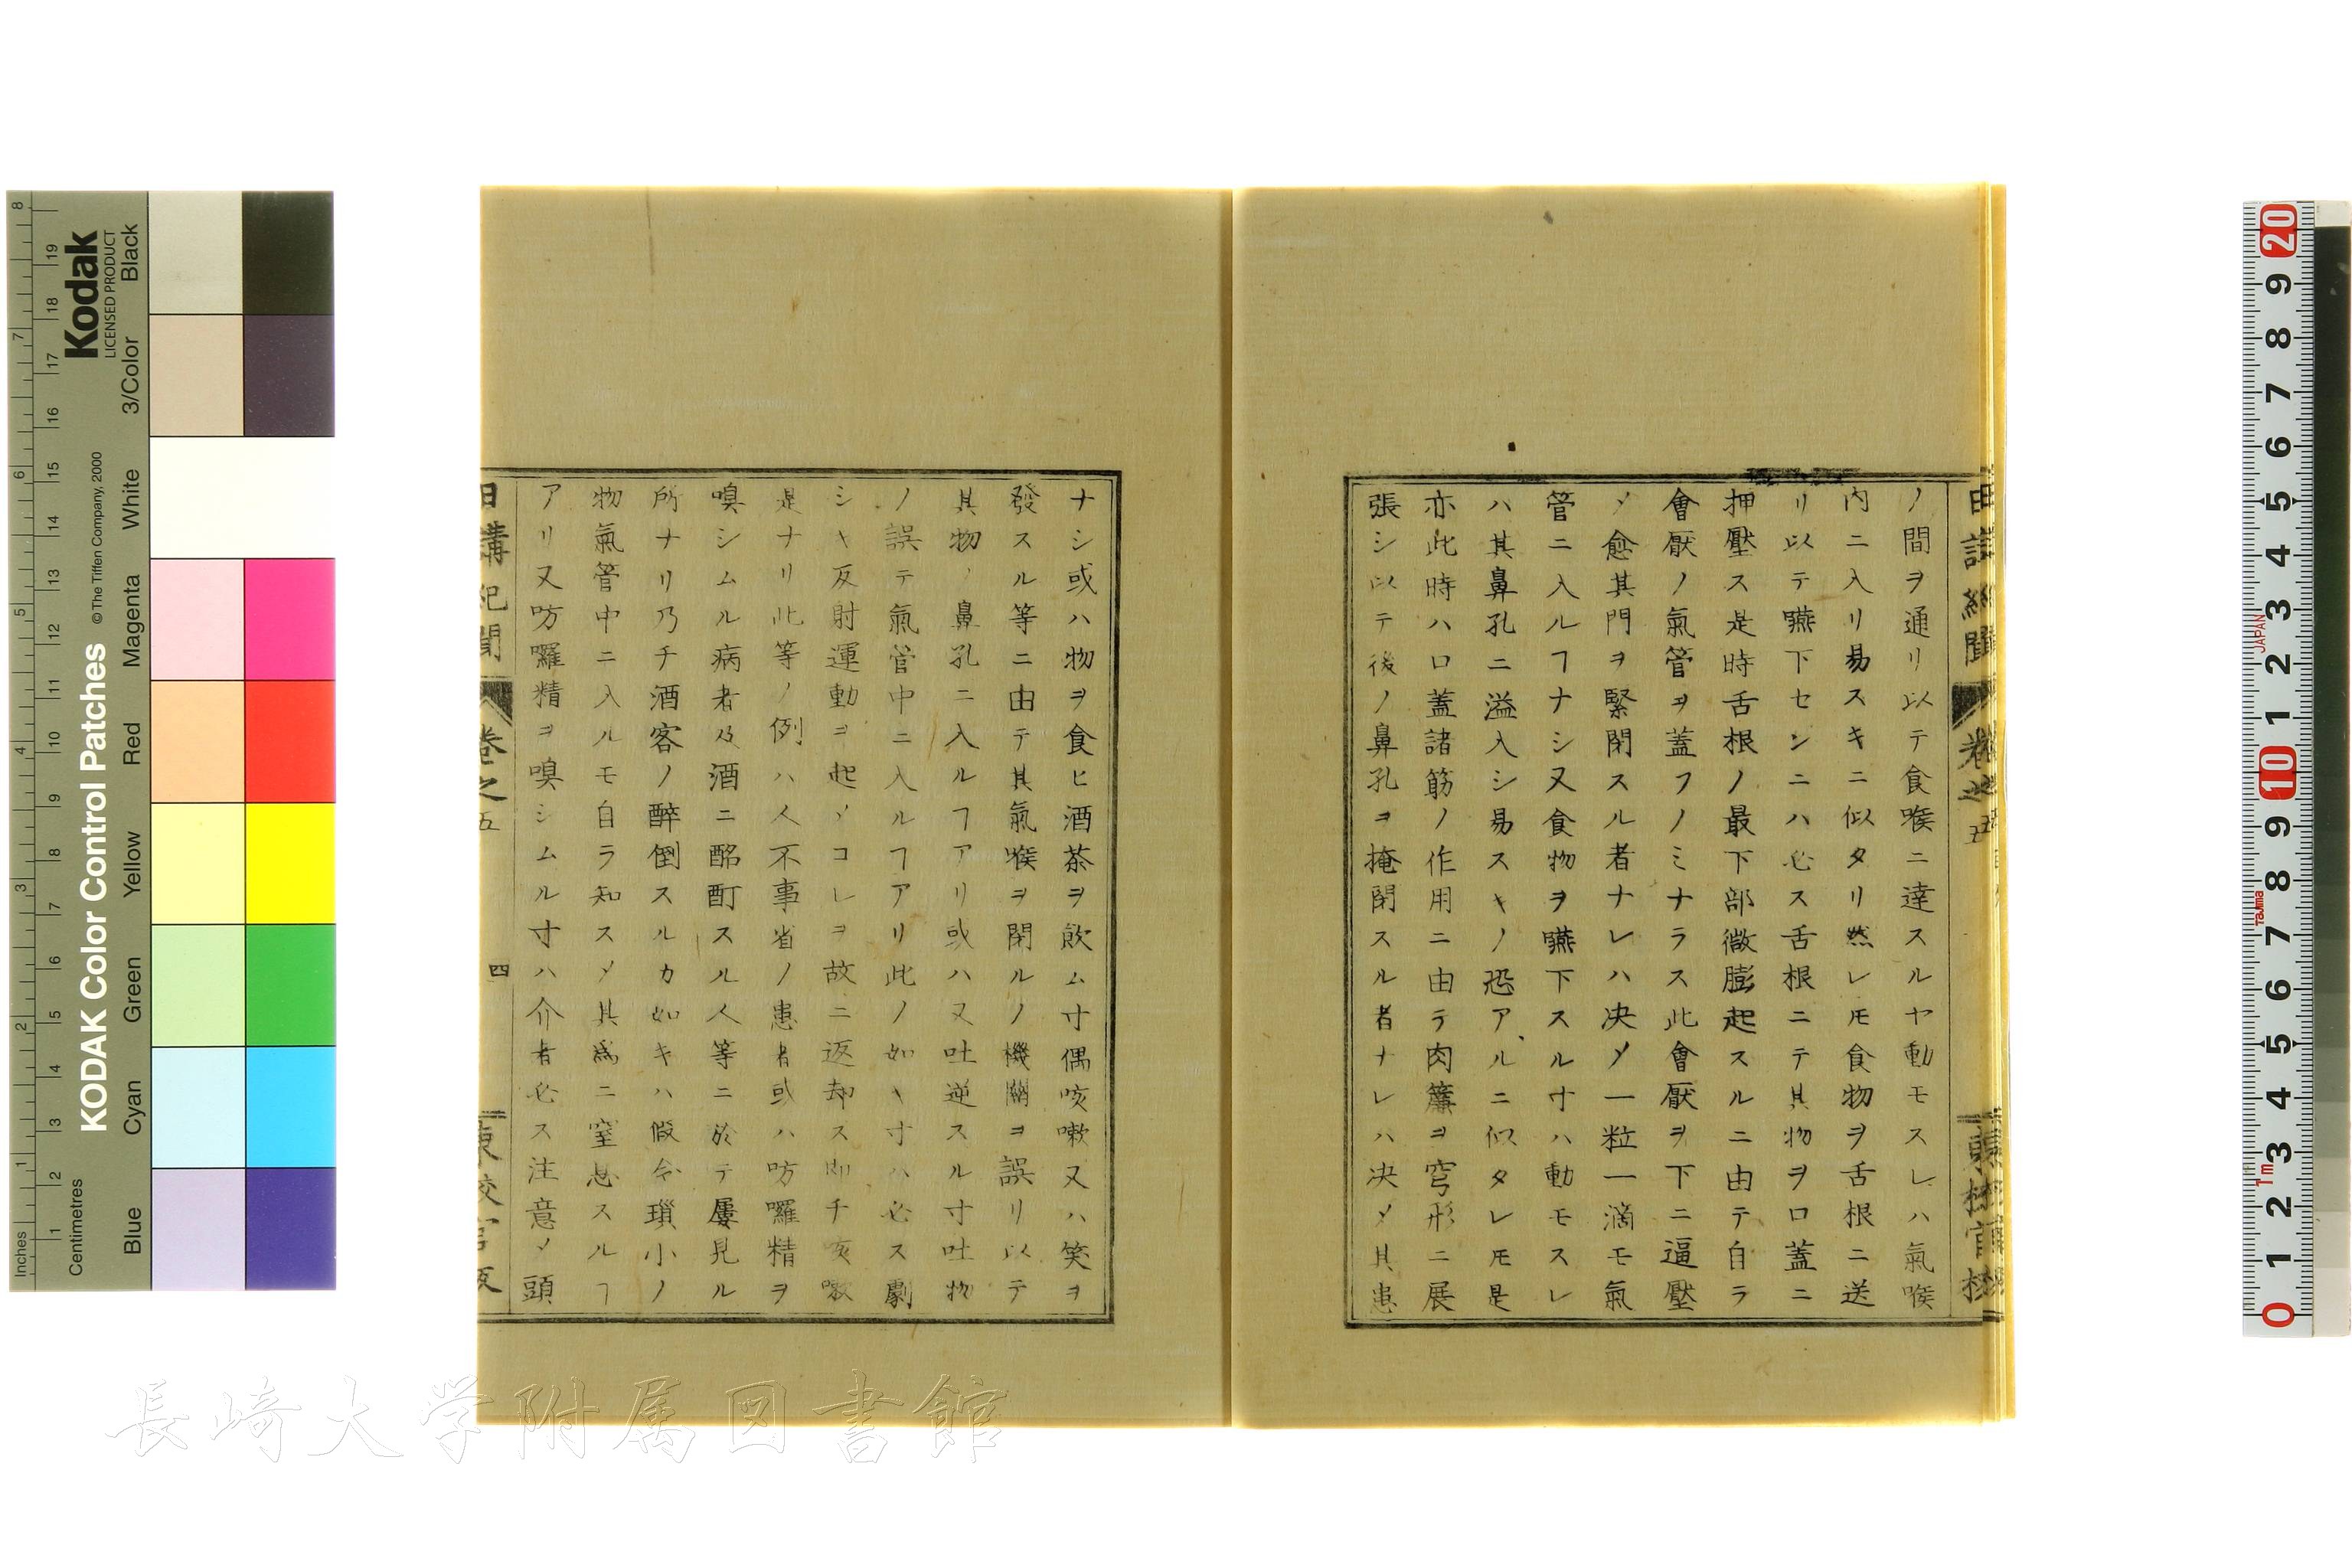 ノ間ヲ通リ以テ食喉ニ達スルヤ動モスレハ氣喉
内ニ入リ易スキニ似タリ然レ𪜈食物ヲ舌根ニ送
リ以テ嚥下センニハ必ス舌根ニテ其物ヲ口蓋ニ
押壓ス是時舌根ノ最下部微膨起スルニ由テ自ラ
會厭ノ氣管ヲ蓋フノミナラス此會厭ヲ下ニ逼壓
〆愈其門ヲ緊閉スル者ナレハ决〆一粒一滴モ氣
管ニ入ルヿナシ又食物ヲ嚥下スル寸ハ動モスレ
ハ其鼻孔ニ溢入シ易スキノ恐アルニ似タレ𪜈是
亦此時ハ口蓋諸筋ノ作用ニ由テ肉簾ヲ穹形ニ展
張シ以テ後ノ鼻孔ヲ掩閉スル者ナレハ决〆其患
ナシ或ハ物ヲ食ヒ酒茶ヲ飲ム寸偶咳嗽又ハ笑ヲ
發スル等ニ由テ其氣喉ヲ閉ルノ機關ヲ誤リ以テ
其物、鼻孔ニ入ルヿアリ或ハ又吐逆スル寸吐物
ノ誤テ氣管中ニ入ルヿアリ此ノ如キ寸ハ必ス劇
シキ反射運動ヲ起〆コレヲ故ニ返却ス即チ咳嗽
是ナリ此等ノ例ハ人不事省ノ患者或ハ吶囉精ヲ
嗅シムル病者及酒ニ酩酊スル人等ニ於テ屢見ル
所ナリ乃チ酒客ノ醉倒スルカ如キハ假令瑣小ノ
物氣管中ニ入ルモ自ラ知ス〆其爲ニ窒息スルヿ
アリ又吶囉精ヲ嗅シムル寸ハ介者必ス注意〆頭
日講紀聞 卷之五 四
長崎大学附属図書館
Kodak
LICENSED PRODUCT
KODAK Color Control Patches
© The Tiffen Company, 2000
Inches
Centimetres
Blue Cyan Green Yellow Red Magenta White 3/Color Black
JAPAN
Tajima
1m